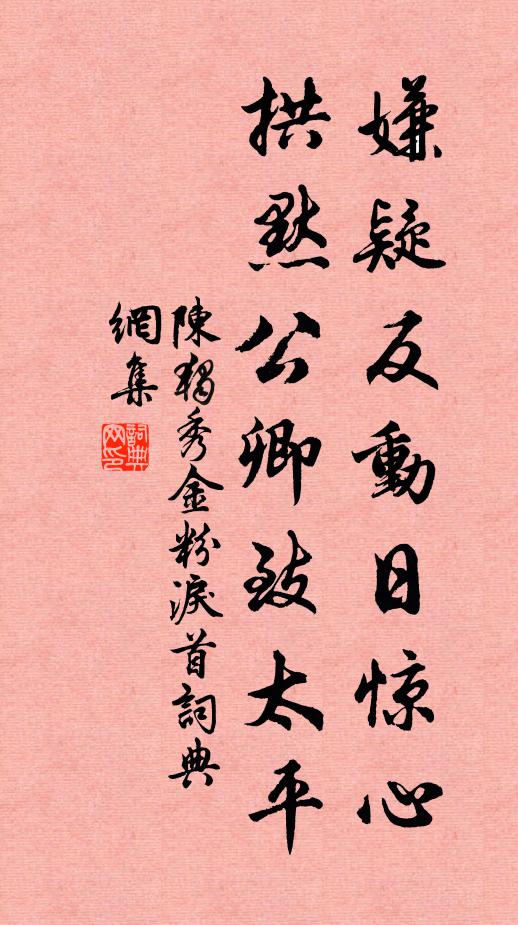 嫌疑反動日惊心
拱默公卿致太平
陳獨秀金粉淚首詞典
網集
詞典
网印